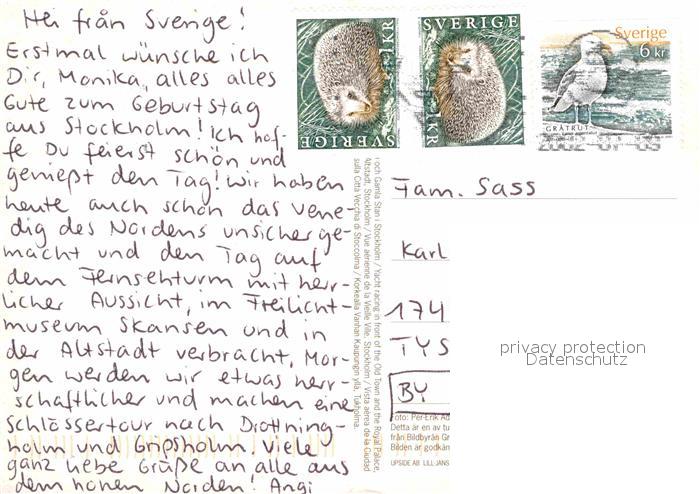 Hei från Sverige!
Erstmal wünsche ich
Dir, Monika, alles alles
Gute zum Geburtstag
aus Stockholm! Ich hof-
fe Du feierst schön und
genießt den Tag! Wir haben
heute auch schon das Vene-
dig des Nordens unsicher ge-
macht und den Tag auf
dem Fernsehturm mit herr-
licher Aussicht, im Freilicht-
museum Skansen und in
der Altstadt verbracht, Mor-
gen werden wir etwas herr-
schaftlicher und machen eine
Schlössertour nach Drottning-
holm und Gripsholm. Viele
ganz liebe Grüße an alle aus
dem hohen Norden! Angi
SVERIGE
1KR
SVERIGE
1KR
Sverige
6 kr
GRÅTRUT
2002
och Gamla Stan i Stockholm / Yacht racing in front of the Old Town and the Royal Palace,
Altstadt, Stockholm / Vue aérienne de la Vieille Ville, Stockholm / Vista aerea de la Ciudad
sulla Città Vecchia di Stoccolma / Korkealla Vanhan Kaupungin yllä, Tukholma
Fam. Sass
Karl
174
TYS
BY
privacy protection
Datenschutz
Foto: Per-Erik Ad
Detta är en av tu
från Bildbyrån Gr
Bilden är godkän
UPSIDE AB LILL-JANS